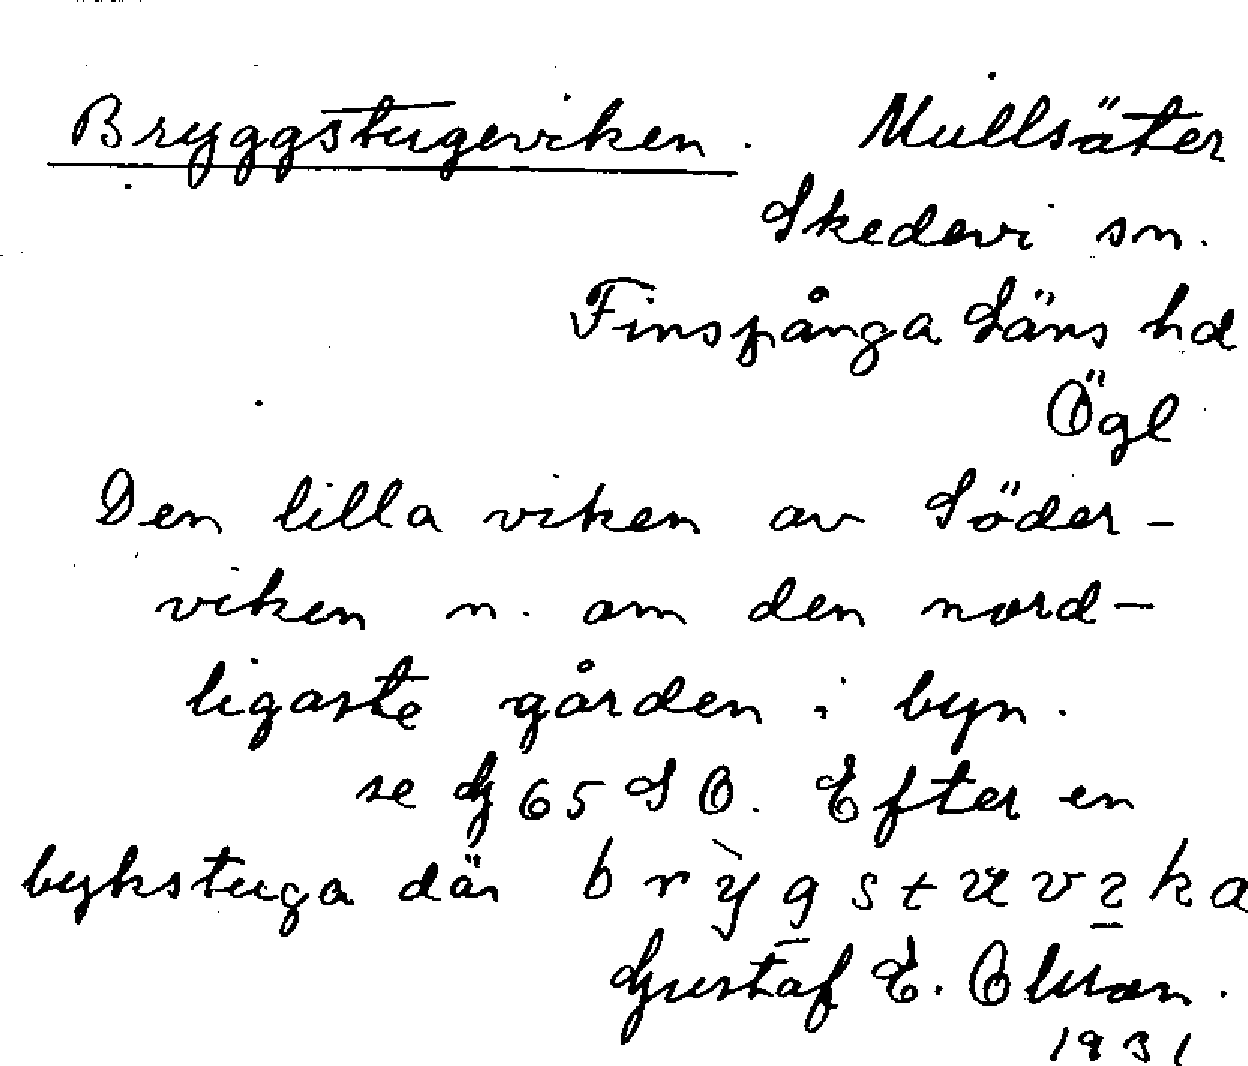 Bryggstugeviken. Mullsäter
Skedevi sn.
Finspånga Läns hd
Ögl
Den lilla viken av Söder-
viken n. om den nord-
ligaste gården i byn.
se G 65 SO. Efter en
bykstuga där
Gustaf E. Olson.
1931